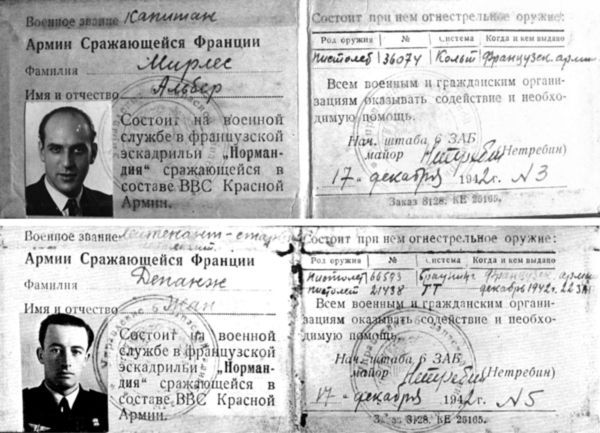 Военное звание Капитан
Армии Сражающейся Франции
Фамилия Мирлес
Имя и отчество Альбер
Состоит на военной
службе в французской
эскадрильи „Норман-
дия" сражающейся в
составе ВВС Красной
Армии.
Состоит при нем огнестрельное оружие:
Род оружия № Система Когда и кем выдано
Пистолет 36074 Кольт Французск. арми
Всем военным и гражданским органи-
зациям оказывать содействие и необхо-
димую помощь.
Нач. штаба 6 ЗАБ
майор Нетребин (Нетребин)
17 декабря 1942 г. N 3
Заказ 3128. КЕ 26165.
Военное звание лейтенант-стар
Армии Сражающейся Франции
Фамилия Депанж
Имя и отчество Жан
Состоит на военной
службе в французской
эскадрильи „Норман-
дия" сражающейся в
составе ВВС Красной
Армии.
Состоит при нем огнестрельное оружие:
Род оружия № Система Когда и кем выдано
Пистолет 66593 Браунинг Французск. арми
пистолет 21438 ТТ декабрь 1942г.
Всем военным и гражданским органи-
зациям оказывать содействие и необхо-
димую помощь.
Нач. штаба 6 ЗАБ
майор Нетребин (Нетребин)
17 декабря 1942 г. N 5
Заказ 3128. КЕ 26165.